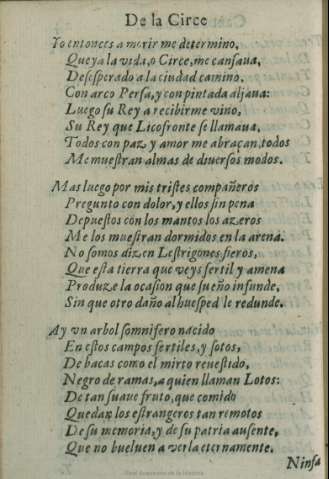 De la Circe
Yo entonces a morir me determino,
Que ya la vida, o Circe, me cansaua,
Desesperado a la ciudad camino,
Con arco Persa, y con pintada aljaua:
Luego su Rey a recibirme vino,
Su Rey que Licofronte se llamaua,
Todos con paz y amor me abraçan, todos
Me muestran almas de diuersos modos.
Mas luego por mis tristes compañeros
Pregunto con dolor, y ellos sin pena
Depuestos con los mantos los azeros
Me los muestran dormidos en la arena.
No somos dizen Lestrigones fieros,
Que esta tierra que veys fertil y amena
Produze la ocasion que sueño infunde,
Sin que otro daño al huesped le redunde.
Ay vn arbol somnifero nacido
En estos campos fertiles, y sotos,
De bacas como el mirto reuestido,
Negro de ramas, a quien llaman Lotos:
De tan suaue fruto, que comido
Quedan los estrangeros tan remotos
De su memoria, y de su patria ausente,
Que no bueluen a verla eternamente.
Ninfa
Real Academia de la Historia